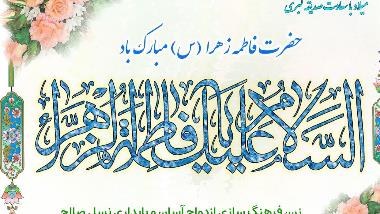 میلاد با سعادت صدیقه کبری
حضرت فاطمه زهرا (س) مبارک باد
السلام علیک یا فاطمة الزهراء
زن، فرهنگ سازی ازدواج آسان و پایداری نسل صالح